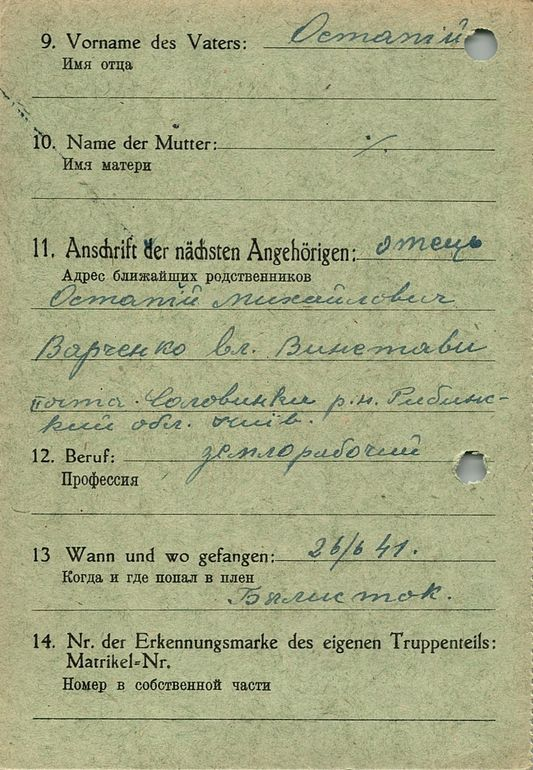 9. Vorname des Vaters: Остапій
Имя отца
10. Name der Mutter: ./.
Имя матери
11. Anschrift der nächsten Angehörigen: отець
Адрес ближайших родственников
Остапій Михайлович
Варченко вл. Винетави
почта. Соловинки р.н. Рибинс-
кий обл.
12. Beruf: землорабочий
Профессия
13 Wann und wo gefangen: 26/6 41.
Когда и где попал в плен
Бялисток.
14. Nr. der Erkennungsmarke des eigenen Truppenteils:
Matrikel=Nr.
Номер в собственной части